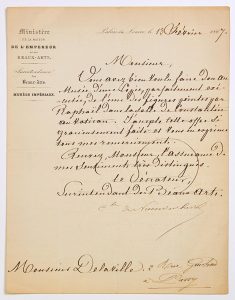 Ministère
DE LA MAISON
DE L'EMPEREUR
ET DES
BEAUX-ARTS.
Surintendance
des
Beaux-Arts.
MUSÉES IMPÉRIAUX.
Palais du Louvre, le 15 Février 1867
Monsieur,
Vous avez bien voulu faire don au
Musée d'une copie parfaitement exé-
cutée, de l'une des figures peintes par
Raphaël dans la salle de Constantin
au Vatican. J'accepte cette offre si
gracieusement faite et vous en exprime
tous mes remerciements.
Recevez, Monsieur, l'assurance de
mes sentiments très distingués.
Le Sénateur,
Surintendant des Beaux-Arts.
Cte de Nieuwerkerke
Monsieur Delaville, 2 Rue
à Passy